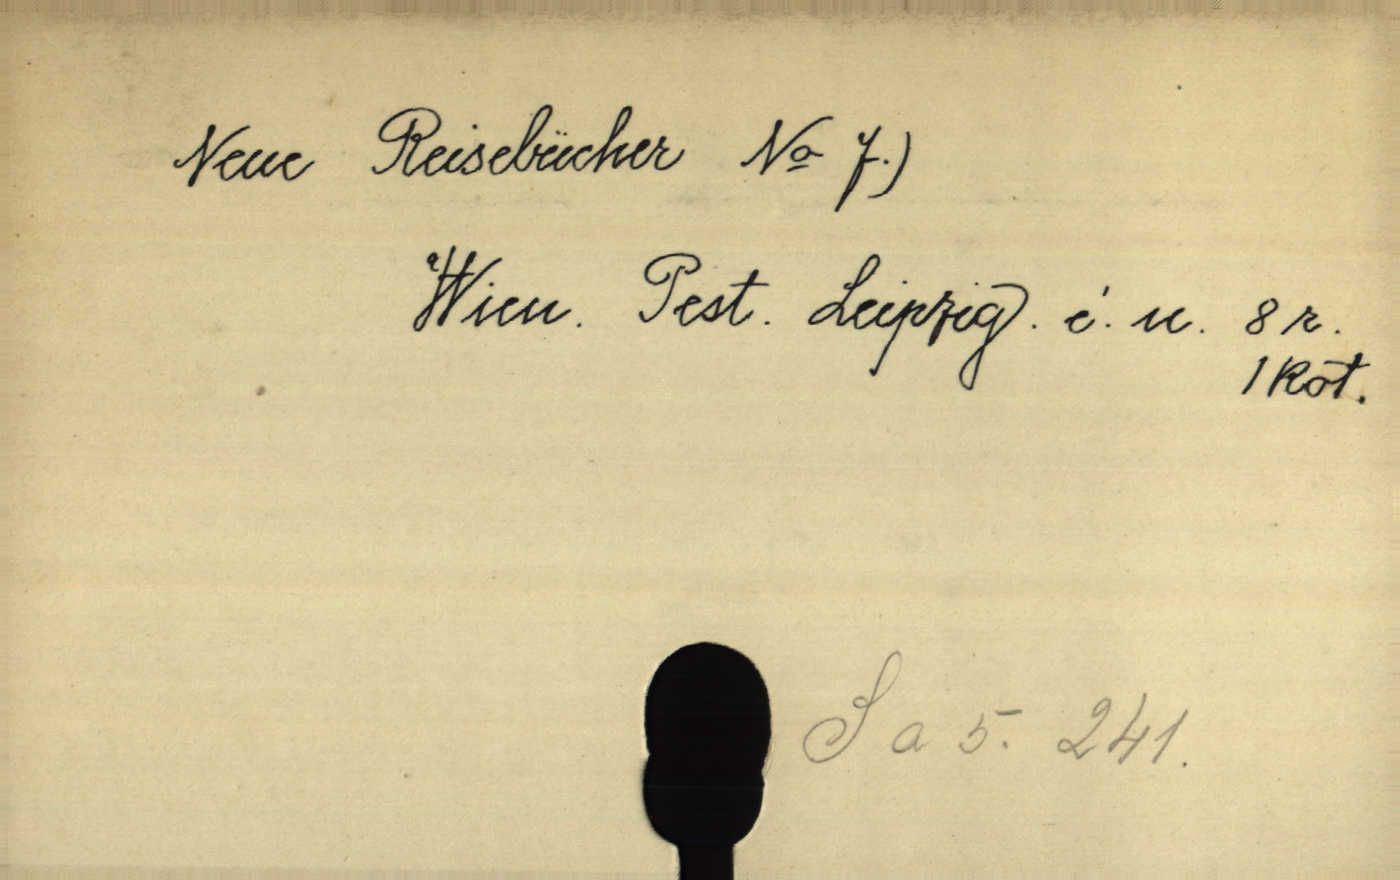 Neue Reisebücher No 7.)
Wien. Pest. Leipzig. é. n. 8 r.
1 Köt.
S a 5. 241.